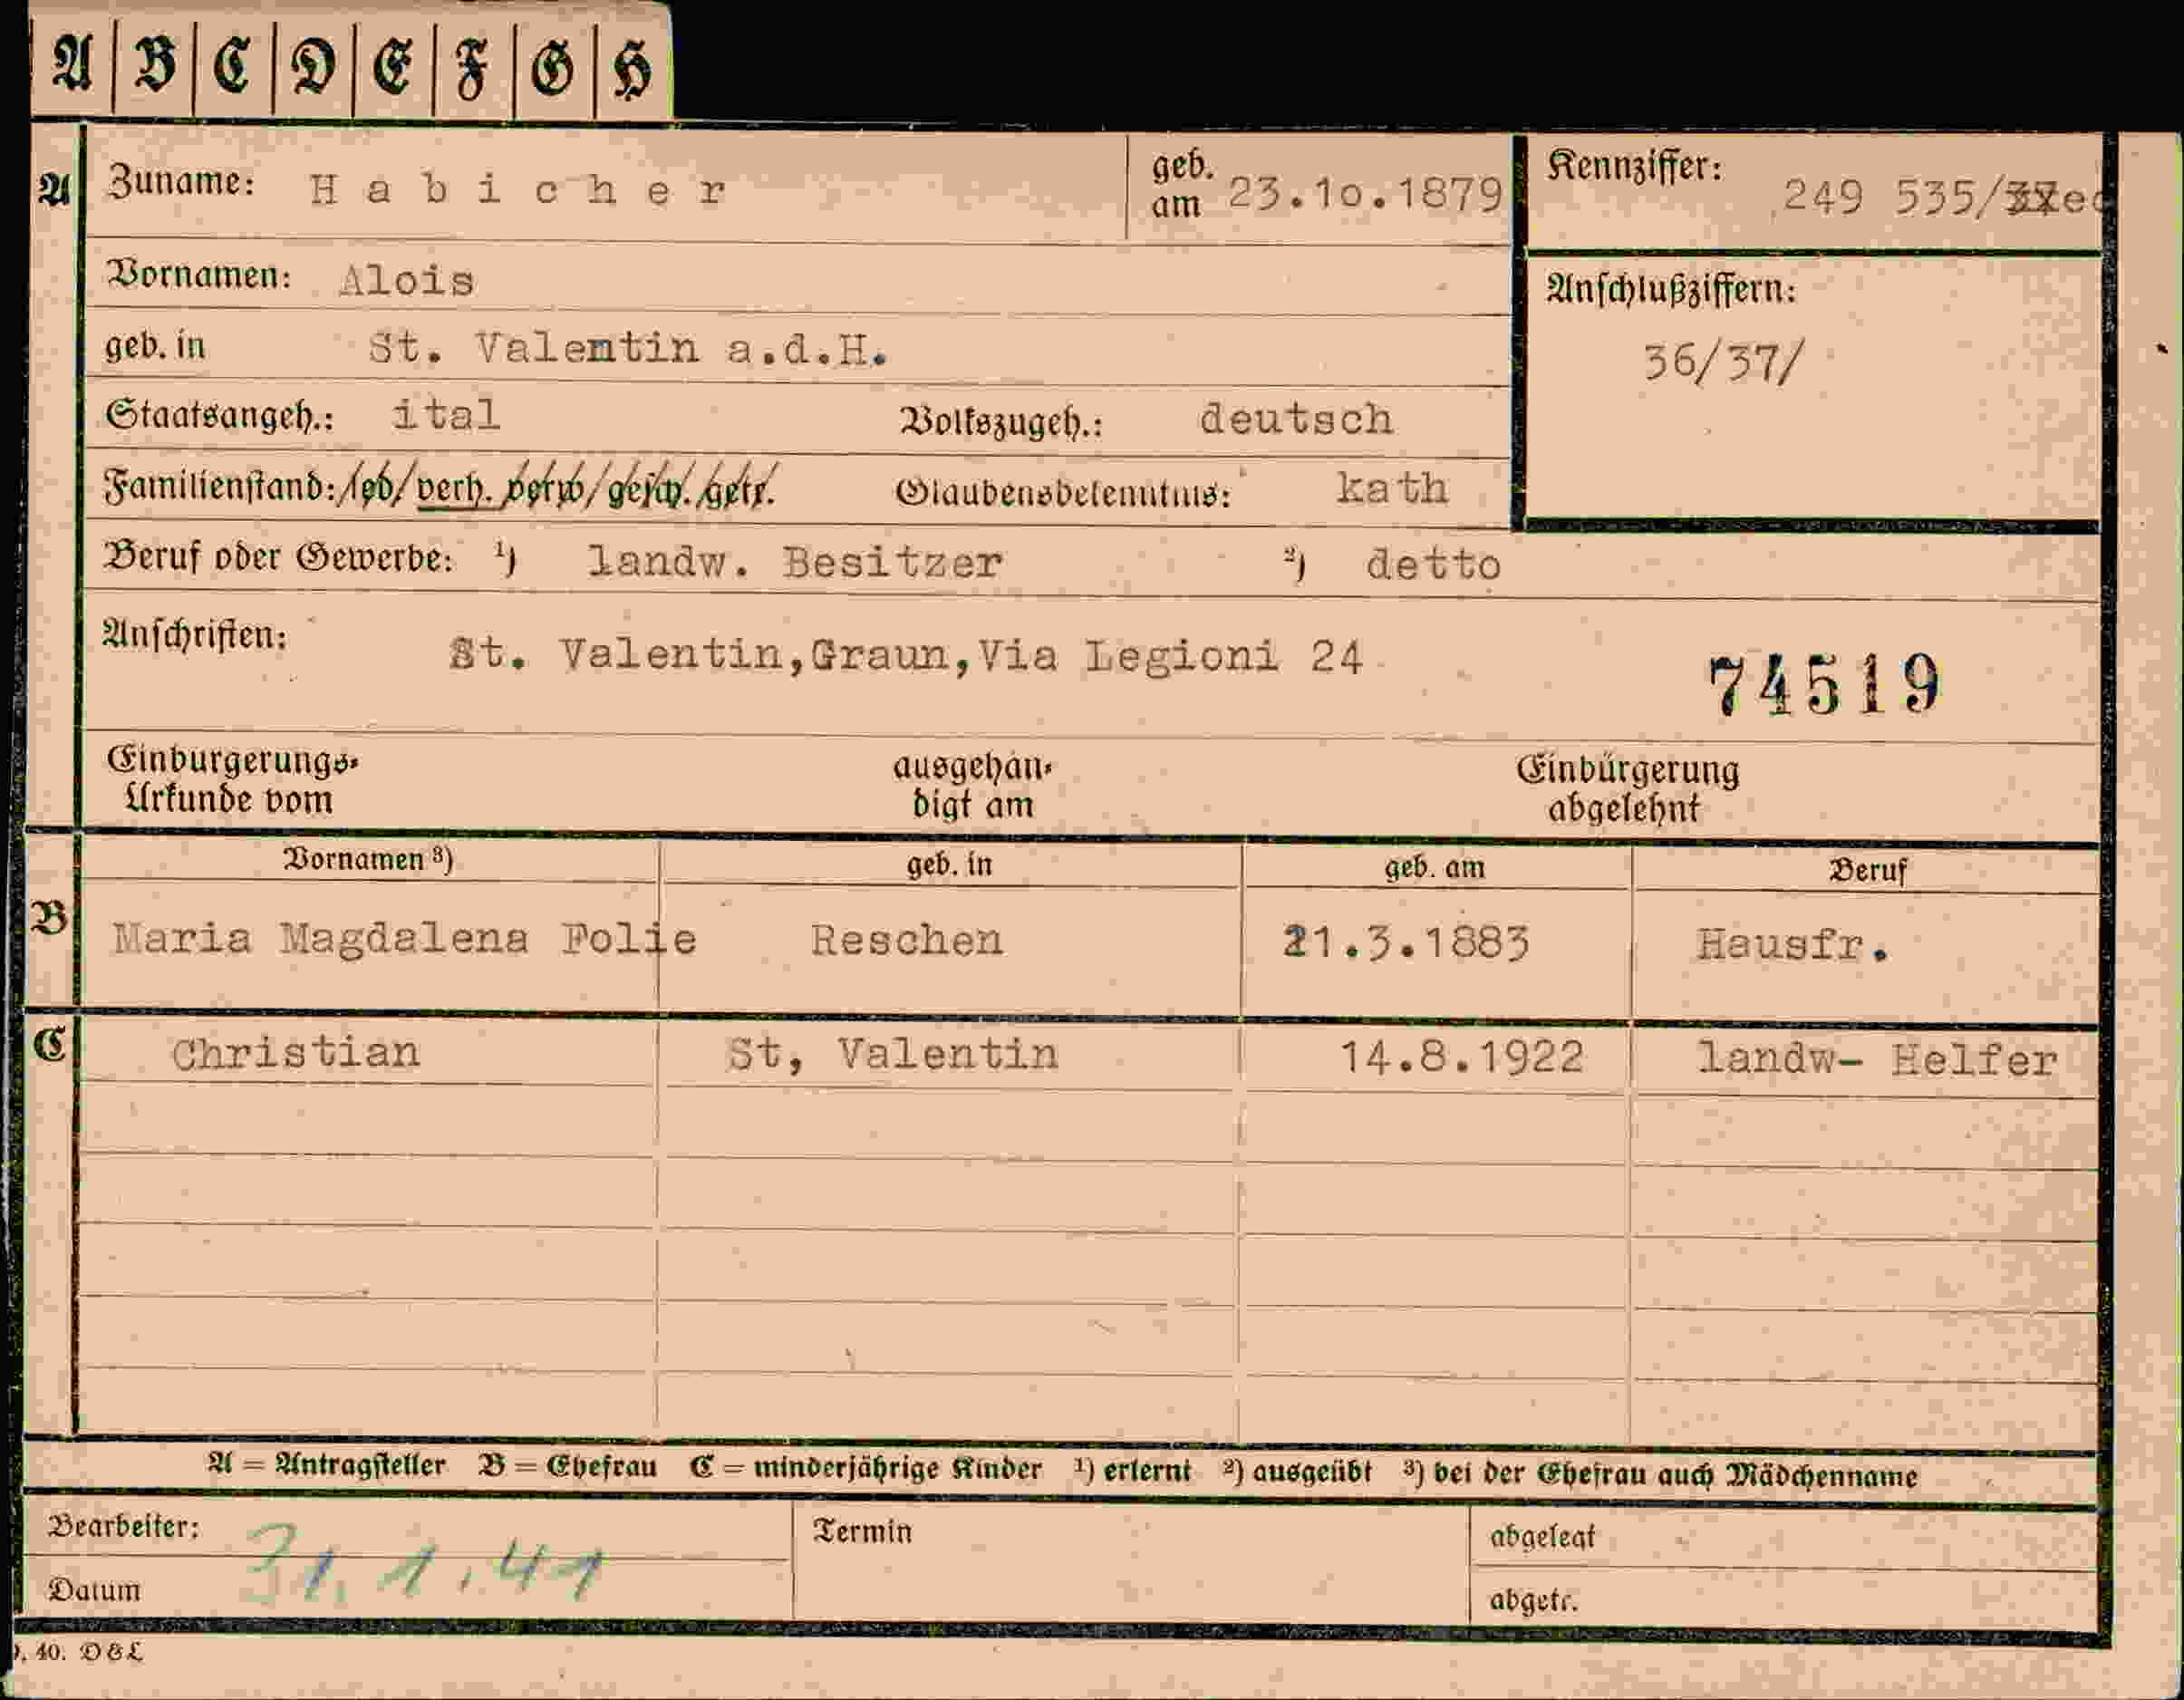 A B C D E F G H
A Zuname: Habicher geb. am 23.10.1879 Kennziffer: 249 535/
Vornamen: Alois Anschlußziffern:
geb. in St. Valentin a.d.H. 36/37/
Staatsangeh.: ital Volkszugeh.: deutsch
Familienstand: led/verh. verw/gesch. getr. Glaubensbekenntnis: kath
Beruf oder Gewerbe: 1) landw. Besitzer 2) detto
Anschriften: St. Valentin,Graun,Via Legioni 24 74519
Einbürgerungs- ausgehän- Einbürgerung
Urkunde vom digt am abgelehnt
Vornamen 3) geb. in geb. am Beruf
B Maria Magdalena Folie Reschen 21.3.1883 Hausfr.
C Christian St, Valentin 14.8.1922 landw- Helfer
A = Antragsteller B = Ehefrau C = minderjährige Kinder 1) erlernt 2) ausgeübt 3) bei der Ehefrau auch Mädchenname
Bearbeiter: Termin abgelegt
31.1.41
Datum abgetr.
40. D&L